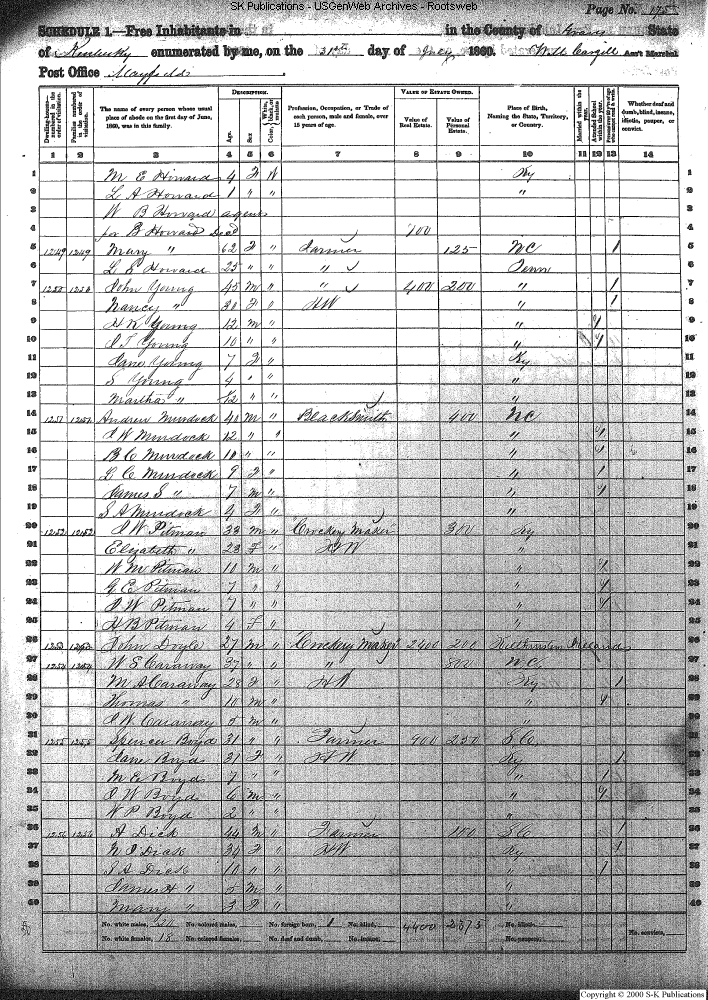 SK Publications - USGenWeb Archives - Rootsweb
Page No. 175
SCHEDULE 1.—Free Inhabitants in in the County of Graves State
of Kentucky enumerated by me, on the 31st day of July 1860. Ass't Marshal
Post Office Mayfield
Dwelling-houses—numbered in the order of visitation.
Families numbered in the order of visitation.
The name of every person whose usual place of abode on the first day of June, 1860, was in this family.
DESCRIPTION.
Age.
Sex
Color, White, black, or mulatto
Profession, Occupation, or Trade of each person, male and female, over 15 years of age.
VALUE OF ESTATE OWNED.
Value of Real Estate.
Value of Personal Estate.
Place of Birth, Naming the State, Territory, or Country.
Married within the year.
Attended School within the year.
Whether deaf and dumb, blind, insane, idiotic, pauper, or convict.
1 2 3 4 5 6 7 8 9 10 11 12 13 14
1 M E Howard 4 F W Ky 1
2 L A Howard 1 " " " 2
3 W B Howard agent 3
4 for B Howard Decd 700 4
5 1249 1249 Mary " 62 F " Farmer 125 NC 1 5
6 Howard 25 " " " Tenn 6
7 1250 1250 John Young 45 m " " 400 200 " 1 7
8 Nancy " 30 F " HW " 1 8
9 H K Young 12 m " " 9
10 Young 10 " " " 10
11 Jane Young 7 F " Ky 11
12 S Young 4 " " " 12
13 Martha " " " 13
14 1251 1251 Andrew Murdock 40 m " Blacksmith 400 NC 14
15 J W Murdock 12 " " " 15
16 B C Murdock 10 " " " 16
17 L C Murdock 9 F " " 1 17
18 James S " 7 m " " 18
19 S A Murdock 4 F " " 19
20 1252 1252 J W Pitman 33 m " Crockery Maker 300 Ky 20
21 Elizabeth " 28 F " HW " 21
22 W M Pitman 10 m " " 22
23 G E Pitman 7 " " " 23
24 J W Pitman 7 " " " 24
25 H B Pitman 4 F " " 25
26 1253 1253 John Doyle 27 m " Crockery Maker 2400 200 26
27 1254 1254 W S Caraway 37 " " " 800 NC 27
28 M A Caraway 28 F " HW Ky 1 28
29 Thomas " 10 m " " 29
30 J W Caraway 5 m " " 30
31 1255 1255 Spencer Boyd 31 " " Farmer 900 250 S C 31
32 Jane Boyd 31 F " HW Ky 1 32
33 M E Boyd 7 " " " 1 33
34 J W Boyd 6 m " " 34
35 W P Boyd 2 " " " 35
36 1256 1256 A Dick 44 m " Farmer 100 S C 1 36
37 N J Dick 34 F " HW Ky 1 37
38 S A Dick 10 " " " 1 38
39 James H " 5 m " " 39
40 Mary " 3 F " " 40
No. white males, No. colored males, No. foreign born, 1 No. blind, 4400 2375 No. idiotic,
No. white females, 18 No. colored females, No. deaf and dumb, No. insane, No. paupers, No. convicts,
Copyright © 2000 S-K Publications